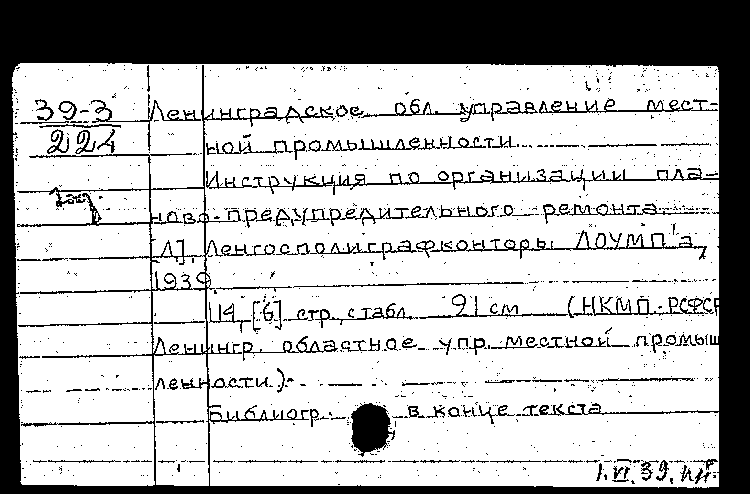 39-3 Ленинградское обл. управление мест-
224 ной промышленности
Инструкция по организации пла-
ново-предупредительного ремонта.
[Л], Ленгосполиграфконторы ЛОУМП'а,
1939.
114, [6] стр., с табл. 21 см (НКМП. РСФСР
Ленингр. областное упр. местной промыш
ленности).
Библиогр. в конце текста
1.VI.39.